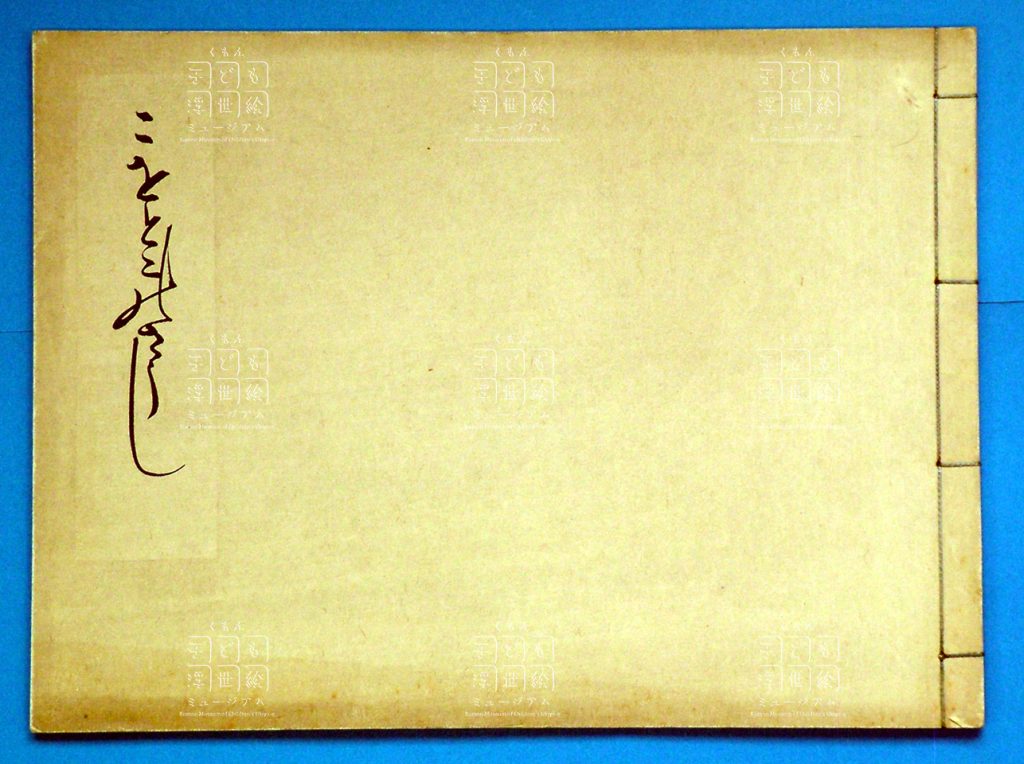 くもん
子ども
浮世絵
ミュージアム
Kumon Museum of Children's Ukiyo-e
くもん
子ども
浮世絵
ミュージアム
Kumon Museum of Children's Ukiyo-e
くもん
子ども
浮世絵
ミュージアム
Kumon Museum of Children's Ukiyo-e
こをとこのさうし
くもん
子ども
浮世絵
ミュージアム
Kumon Museum of Children's Ukiyo-e
くもん
子ども
浮世絵
ミュージアム
Kumon Museum of Children's Ukiyo-e
くもん
子ども
浮世絵
ミュージアム
Kumon Museum of Children's Ukiyo-e
くもん
子ども
浮世絵
ミュージアム
Kumon Museum of Children's Ukiyo-e
くもん
子ども
浮世絵
ミュージアム
Kumon Museum of Children's Ukiyo-e
くもん
子ども
浮世絵
ミュージアム
Kumon Museum of Children's Ukiyo-e